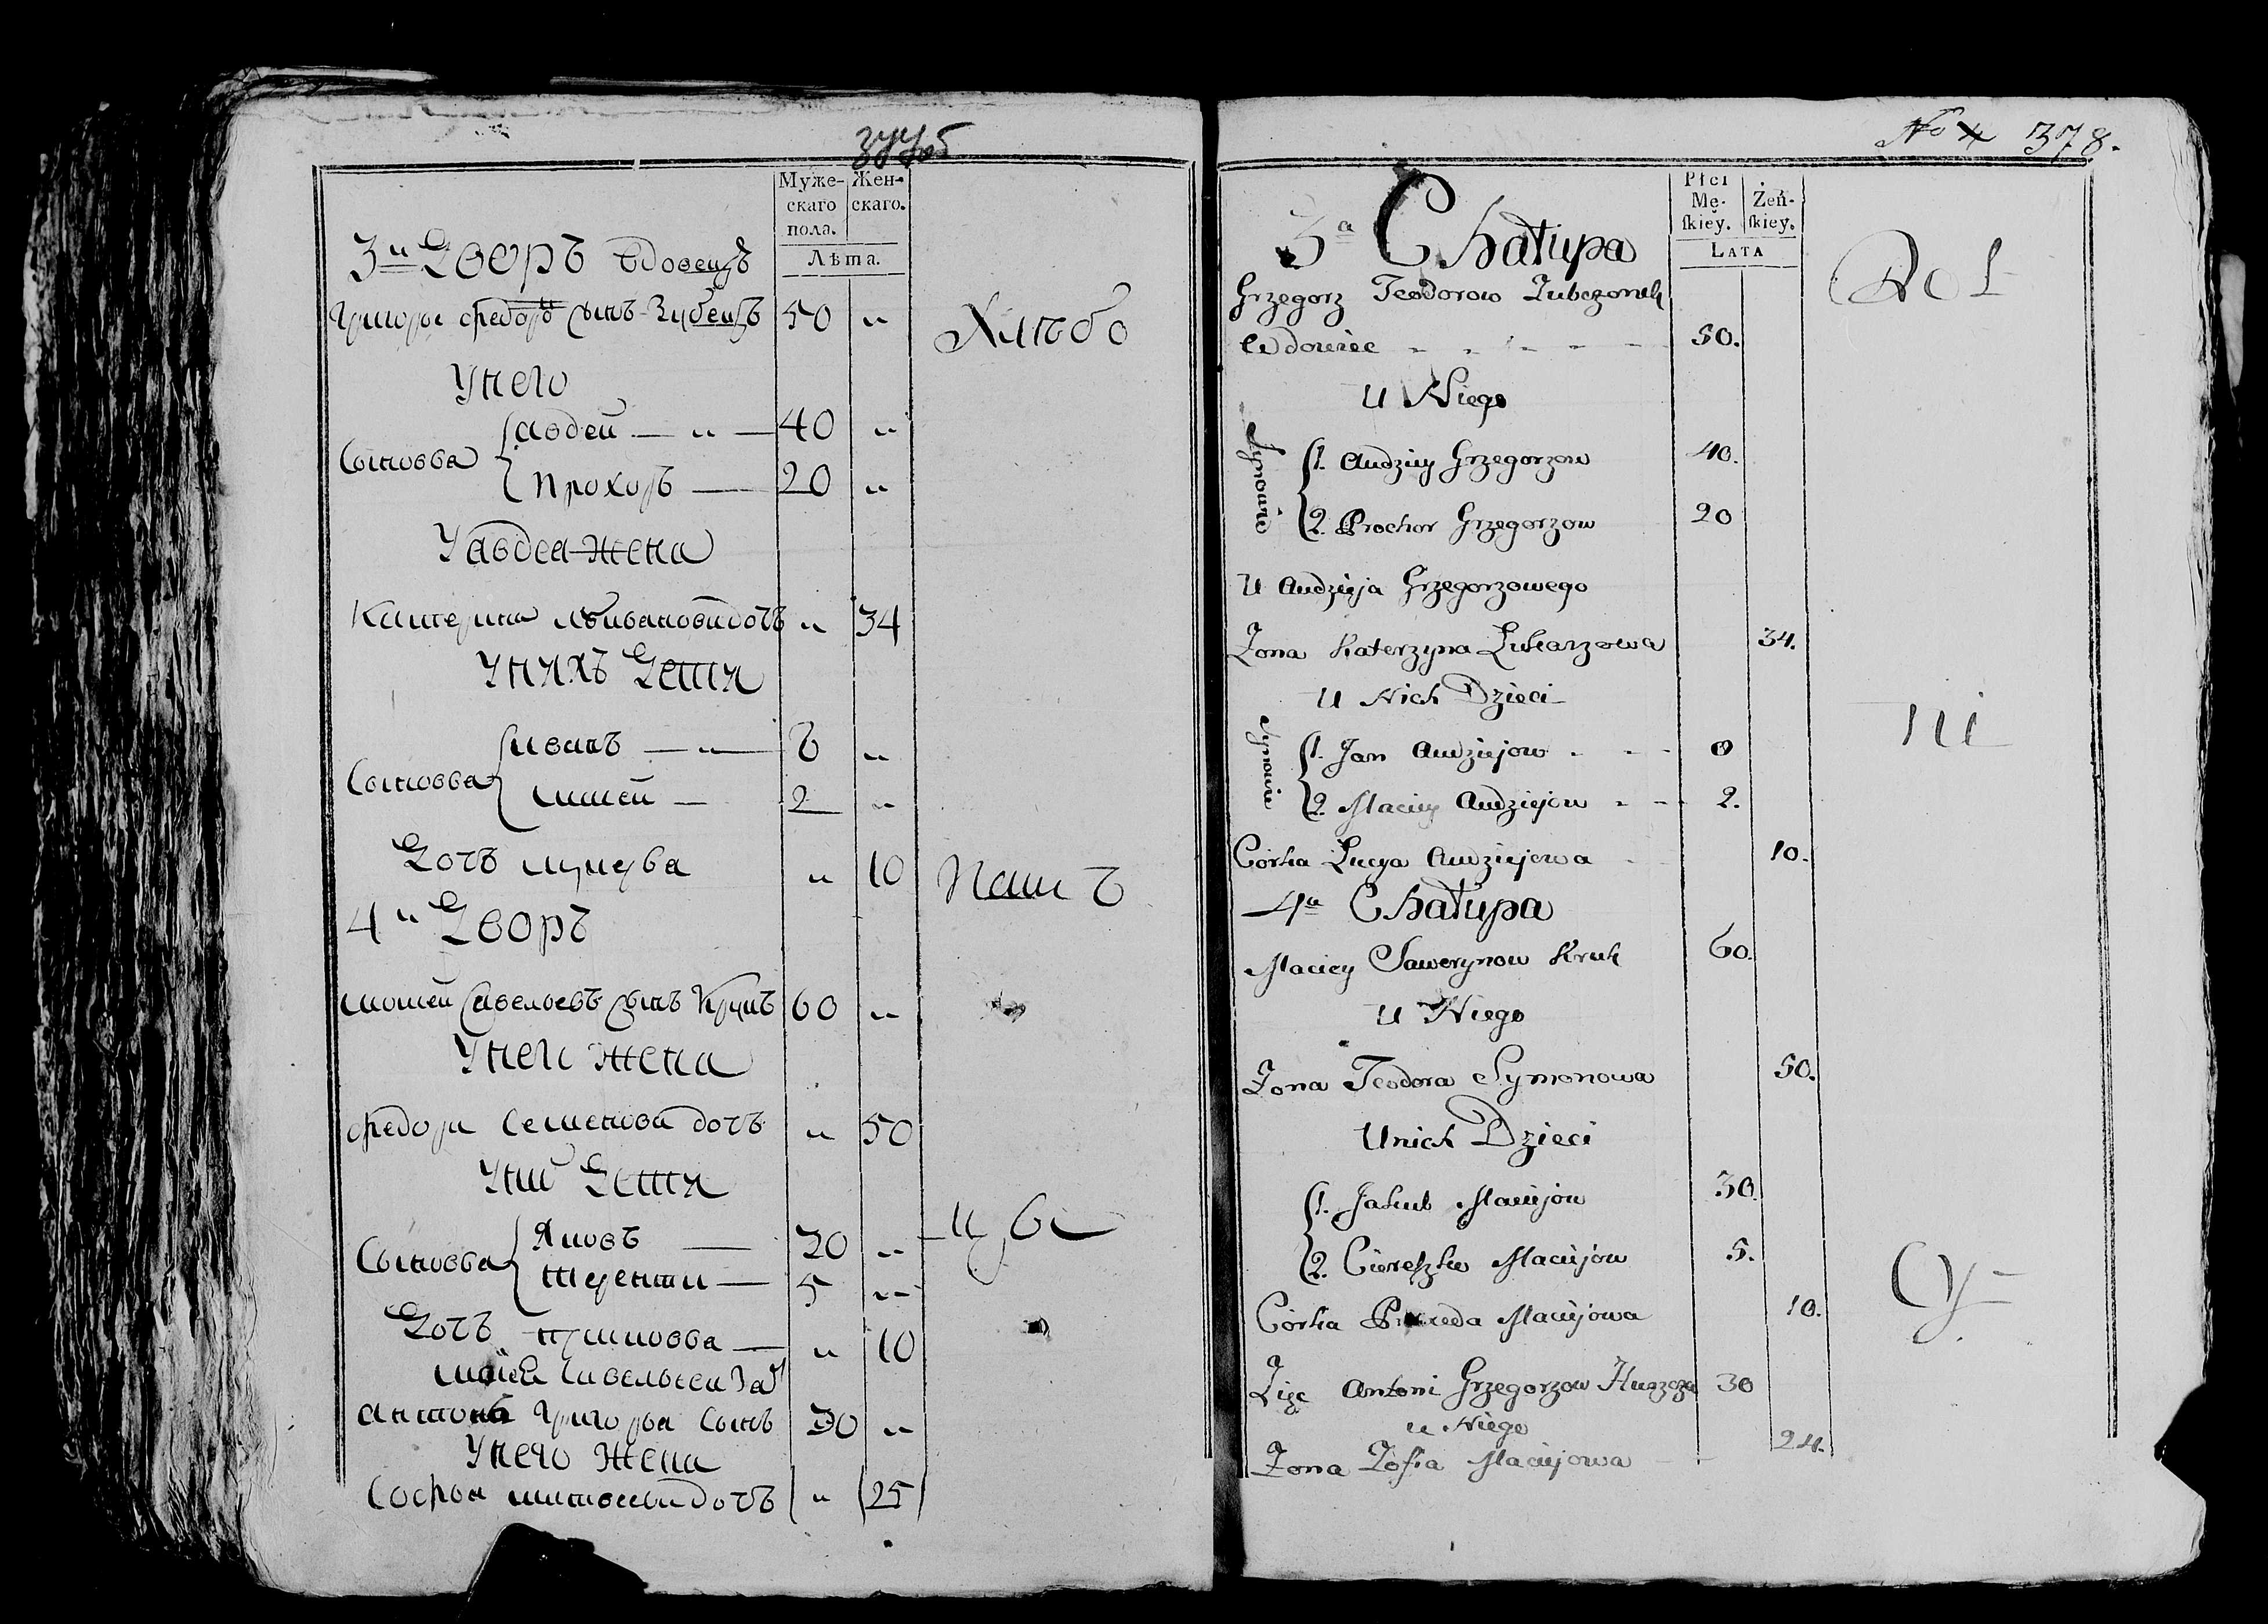 Муже-
скаго
пола.
Жен-
скаго.
Лѣта.
3й Дворъ вдовецъ
Григоры Федоръ сынъ Зубецъ 50 „
Унего
Сыновья
Авдей — „ — 40 „
Прохоръ — 20 „
У авдея жена
Катерина дочь „ 34
Унихъ Дети
Сыновья
иванъ — „ — 8 „
матей — 2 „
Дочъ „ 10
4й Дворъ
матей Савельевъ сынъ Крукъ 60 „
Унего жена
Федора Семенова дочъ „ 50
Уних Дети
Сыновья
Яковъ — 20 „
терешка — 5 „
Дочъ — „ 10
матея савельева зять
антонъ Григорьа сынъ 30 „
Унего жена
Софья матвеева дочъ „ 25
Хлѣбо
Паш ъ
цы
No 4 378.
Płci
Mę-
ſkiey.
Żeń-
ſkiey.
LATA
3a Chałupa
Grzegorz Teodorow Zubczonek
Wdowiec - - - - - 50.
U Niego
Synowie
1. Audziey Grzegorzow 40.
2. Prochor Grzegorzow 20
U Audzieja Grzegorzowego
Zona Katerzyna Łukarzowa 34.
U Nich Dzieci
Synowie
1. Jan Audziejow - - - 8
2. Maciey Audziejow - - 2.
Córka Łucya Audziejowa - 10.
4a Chałupa
Maciey Sawerynow Kruk 60.
U Niego
Zona Teodora Symonowa 50.
Unich Dzieci
1. Jakub Maciejow 30.
2. Ciereszko Maciejow 5.
Córka Maciejowa 10.
Zięc Antoni Grzegorzow Huszcza 30
u Niego
Zona Zofia Maciejowa - 24.
Rol
ni
cy